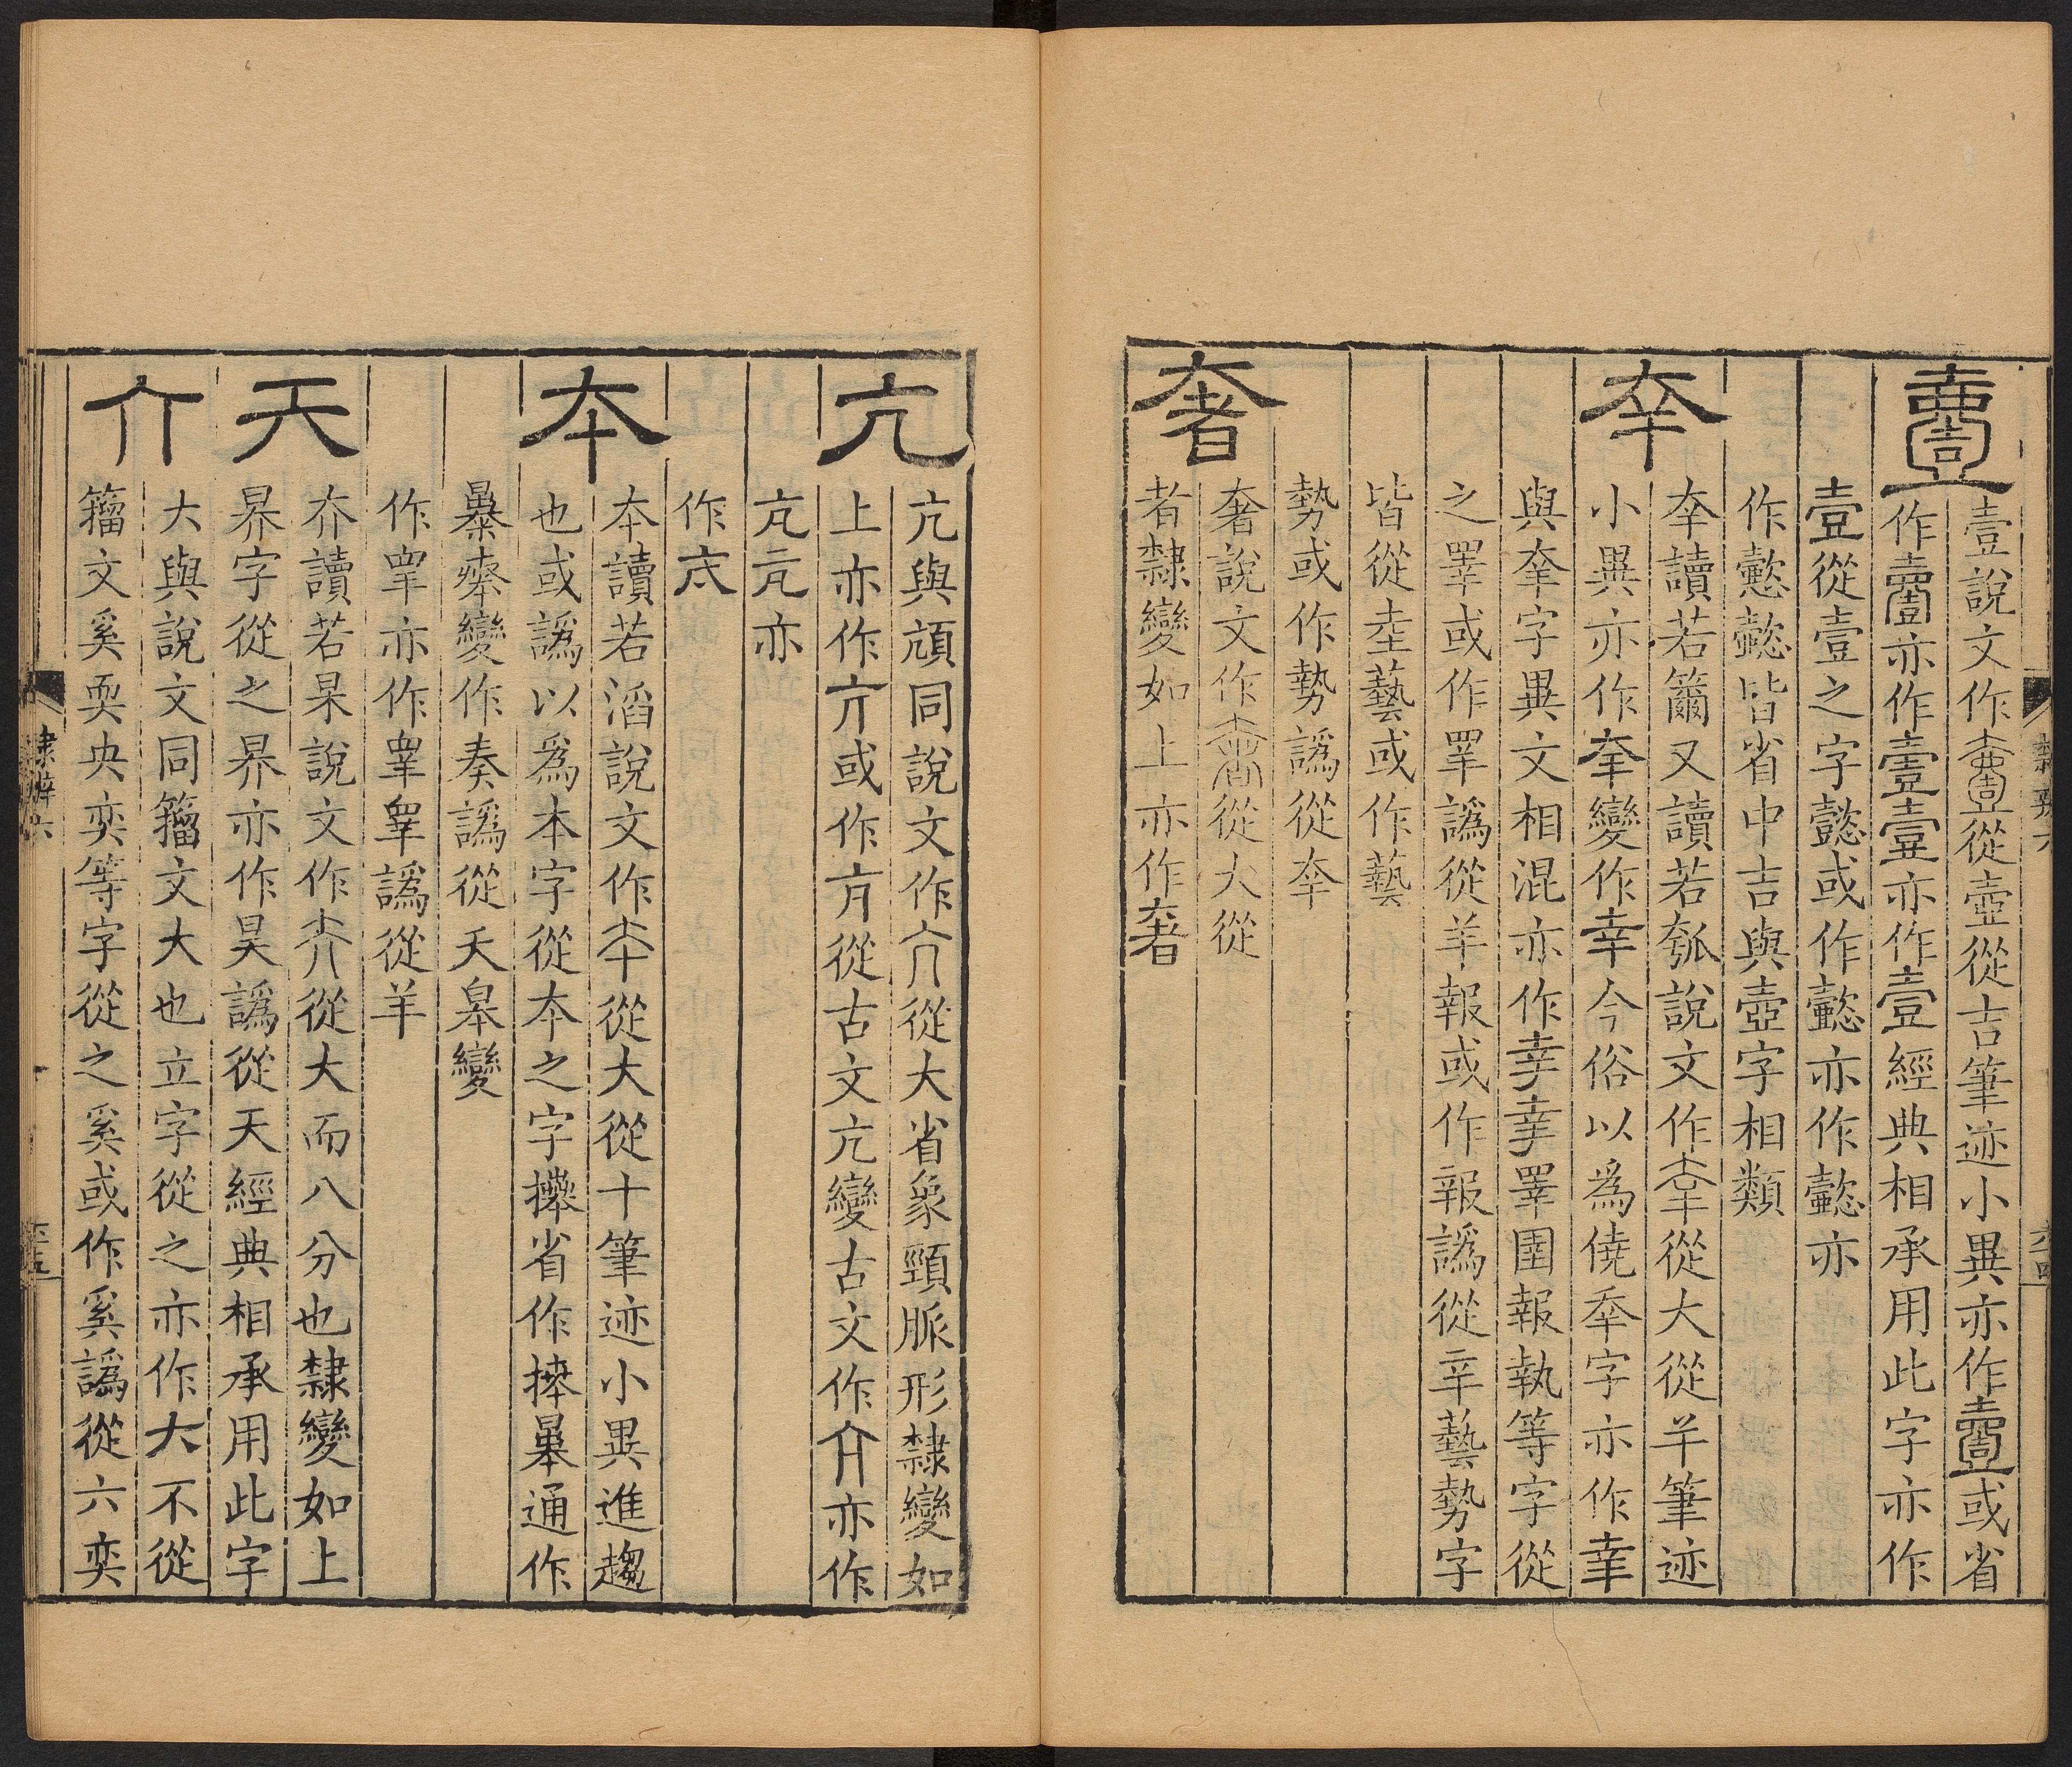 壹說文作壹從壺從吉筆迹小異亦作壹或省
作壹亦作壹壹亦作壹經典相承用此字亦作
壹從壹之字懿或作懿亦作懿亦
作懿懿皆省中吉與壺字相類
㚔
㚔讀若籋又讀若瓠說文作㚔從大從𢆉筆迹
小異亦作㚔變作幸今俗以爲僥㚔字亦作幸
與㚔字異文相混亦作幸幸睪圉報執等字從
之睪或作睪譌從羊報或作報譌從辛藝勢字
皆從坴藝或作藝
勢或作勢譌從㚔
奢
奢說文作奢從大從
者隸變如上亦作奢
隸辨六
六十四
亢
亢與頏同說文作亢從大省象頸脈形隸變如
上亦作亢或作亢從古文亢變古文作亢亦作
亢亢亦
作亢
夲
夲讀若滔說文作夲從大從十筆迹小異進趨
也或譌以爲本字從夲之字㩧省作捧暴通作
暴㻎變作奏譌從天皋變
作皋亦作睾睪譌從羊
夰讀若杲說文作夰從大而八分也隸變如上
昦字從之昦亦作昊譌從天經典相承用此字
大與說文同籀文大也立字從之亦作大不從
籀文奚耎央奕等字從之奚或作奚譌從六奕
隸辨六
六十五